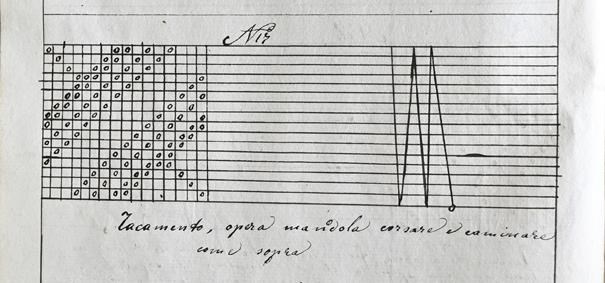 N 13
Tacamento, opera mandola corsare e caminare
come sopra